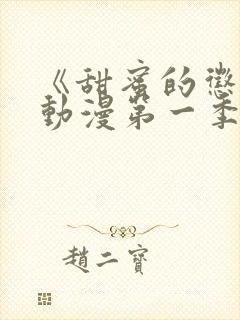 《甜蜜的懲
動漫第一季
趙二寶